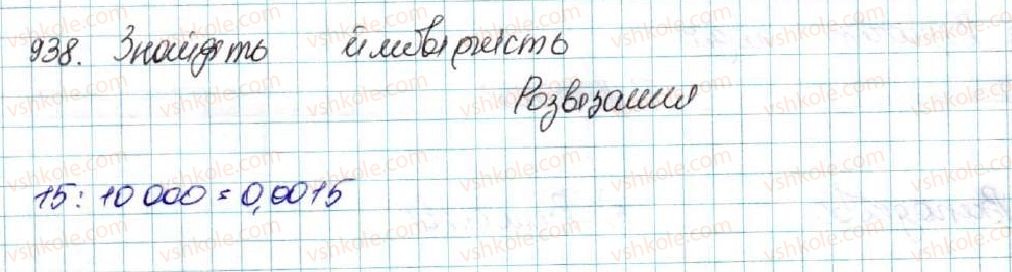 938. Знайдіть ймовірність
Розвязання
15 : 10 000 = 0,0015